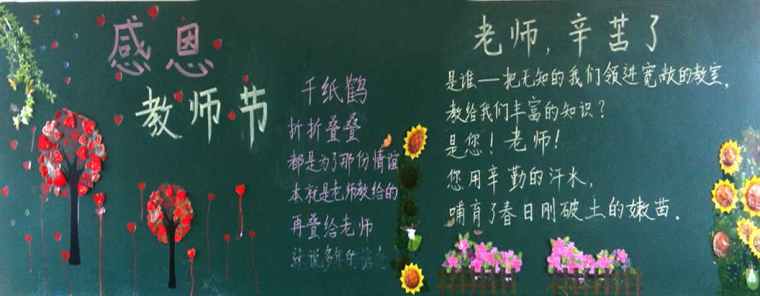 感恩
教师节
千纸鹤
折折叠叠
都是为了那份情谊
本就是老师教给的
再叠给老师
老师,辛苦了
是谁——把无知的我们领进宽敞的教室,
教给我们丰富的知识?
是您!老师!
您用辛勤的汗水,
哺育了春日刚破土的嫩苗.